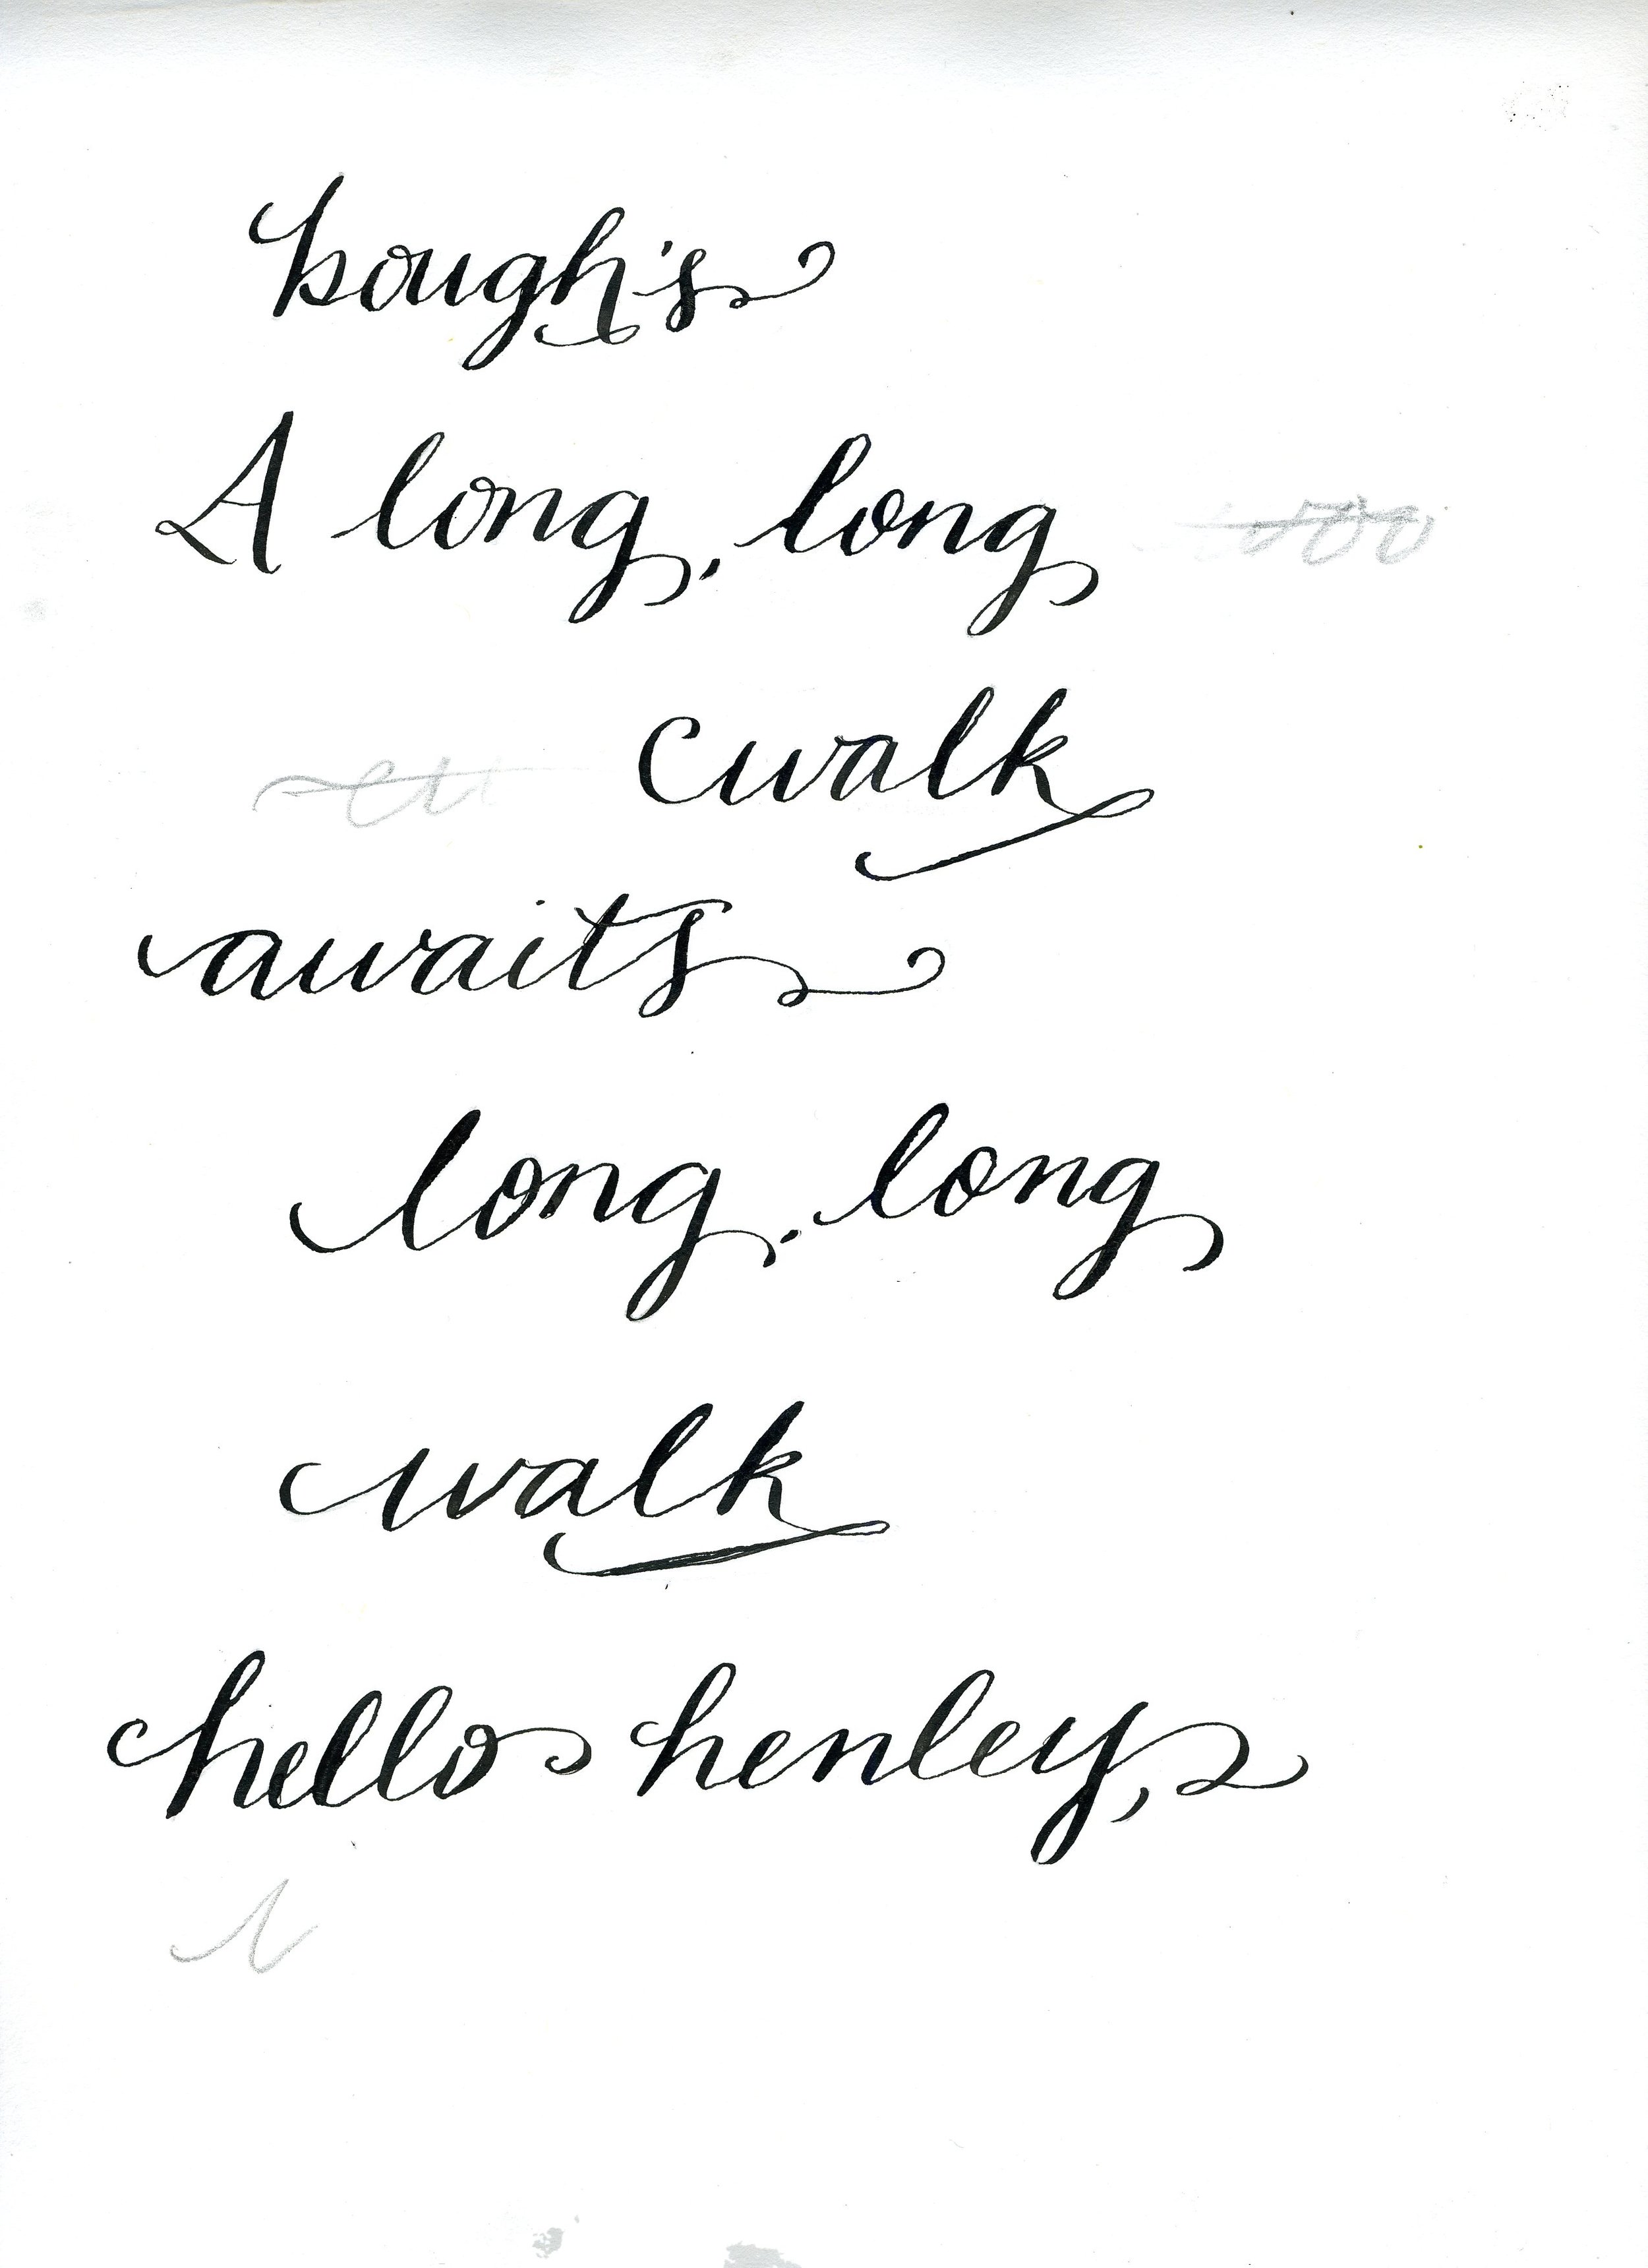 bough's
A long, long
walk
awaits
long, long
walk
hello henley,